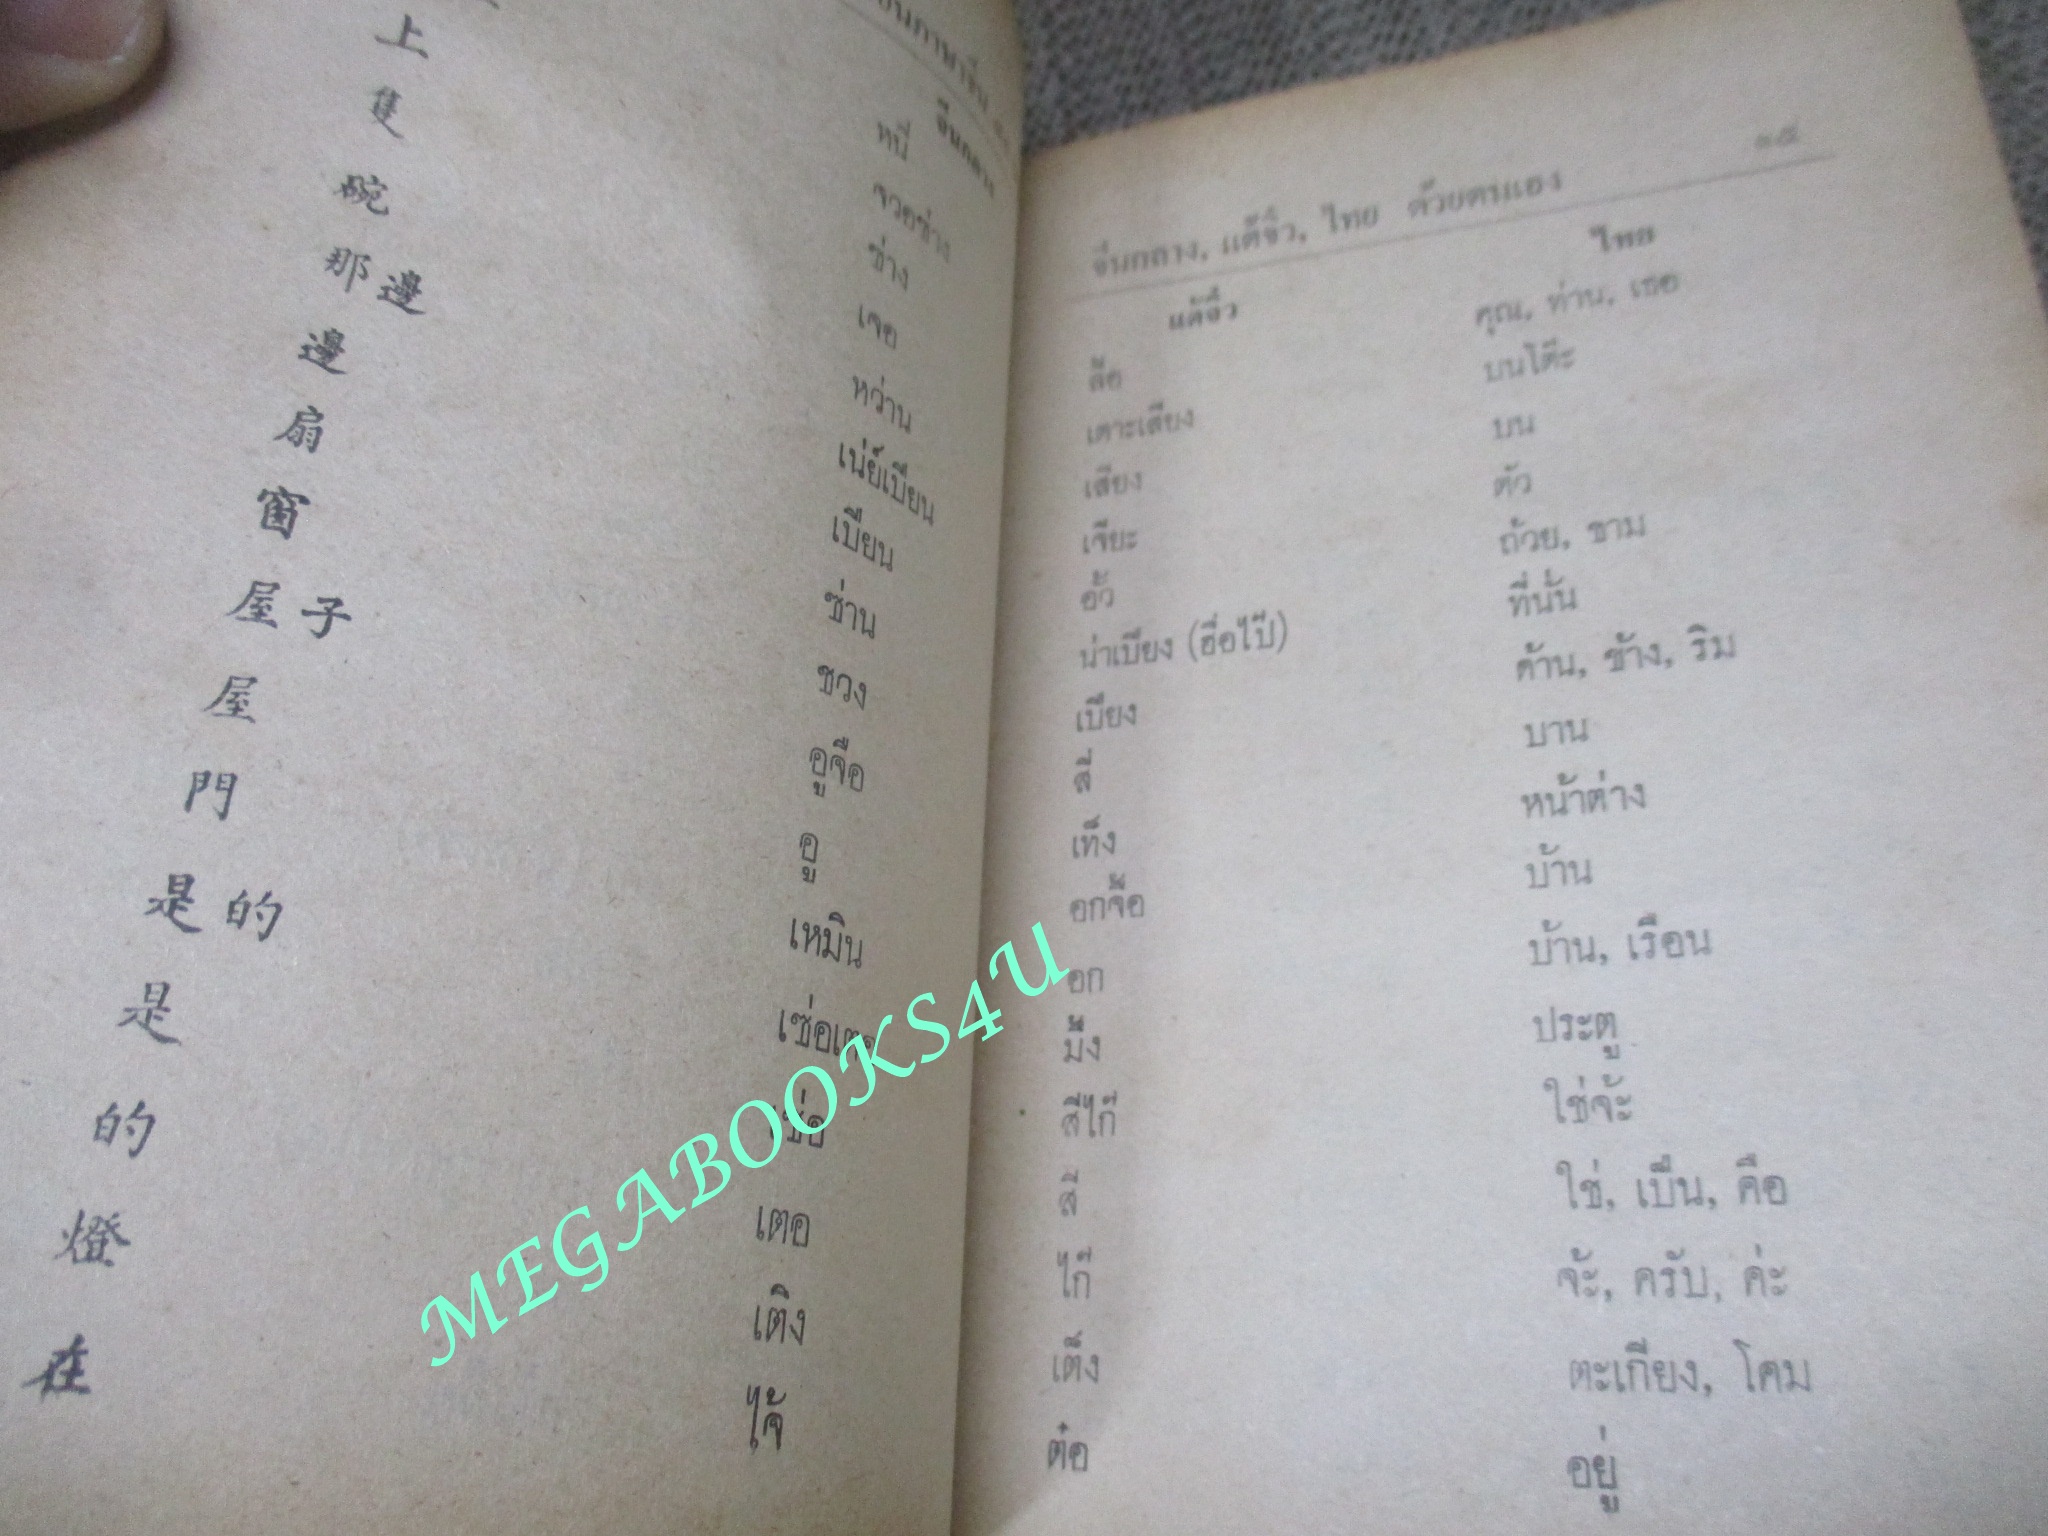 จีนกลาง
上 หนี่
隻 จวอซ่าง
碗 ซ่าง
那邊 เจอ
邊 หว่าน
扇 เน่ย์เบียน
窗 เบียน
屋子 ซ่าน
屋 ชวง
門 อูจือ
是的 อู
是 เหมิน
的 เซ่อเตอ
燈 เซ่อ
在 เตอ
เติง
ไจ้
จีนกลาง, แต้จิ๋ว, ไทย ด้วยตนเอง ๑๕
แต้จิ๋ว ไทย
ลื้อ คุณ, ท่าน, เธอ
เตาะเสียง บนโต๊ะ
เสียง บน
เจียะ ตัว
อั้ว ถ้วย, ชาม
น่าเบียง (ฮื่อไป๊) ที่นั่น
เบียง ด้าน, ข้าง, ริม
สี่ บาน
เท็ง หน้าต่าง
อกจื้อ บ้าน
อก บ้าน, เรือน
มึ้ง ประตู
สี่ไก๊ ใช่จ้ะ
สี่ ใช่, เป็น, คือ
ไก๊ จ้ะ, ครับ, ค่ะ
เต็ง ตะเกียง, โคม
ต๋อ อยู่
MEGABOOKS4U